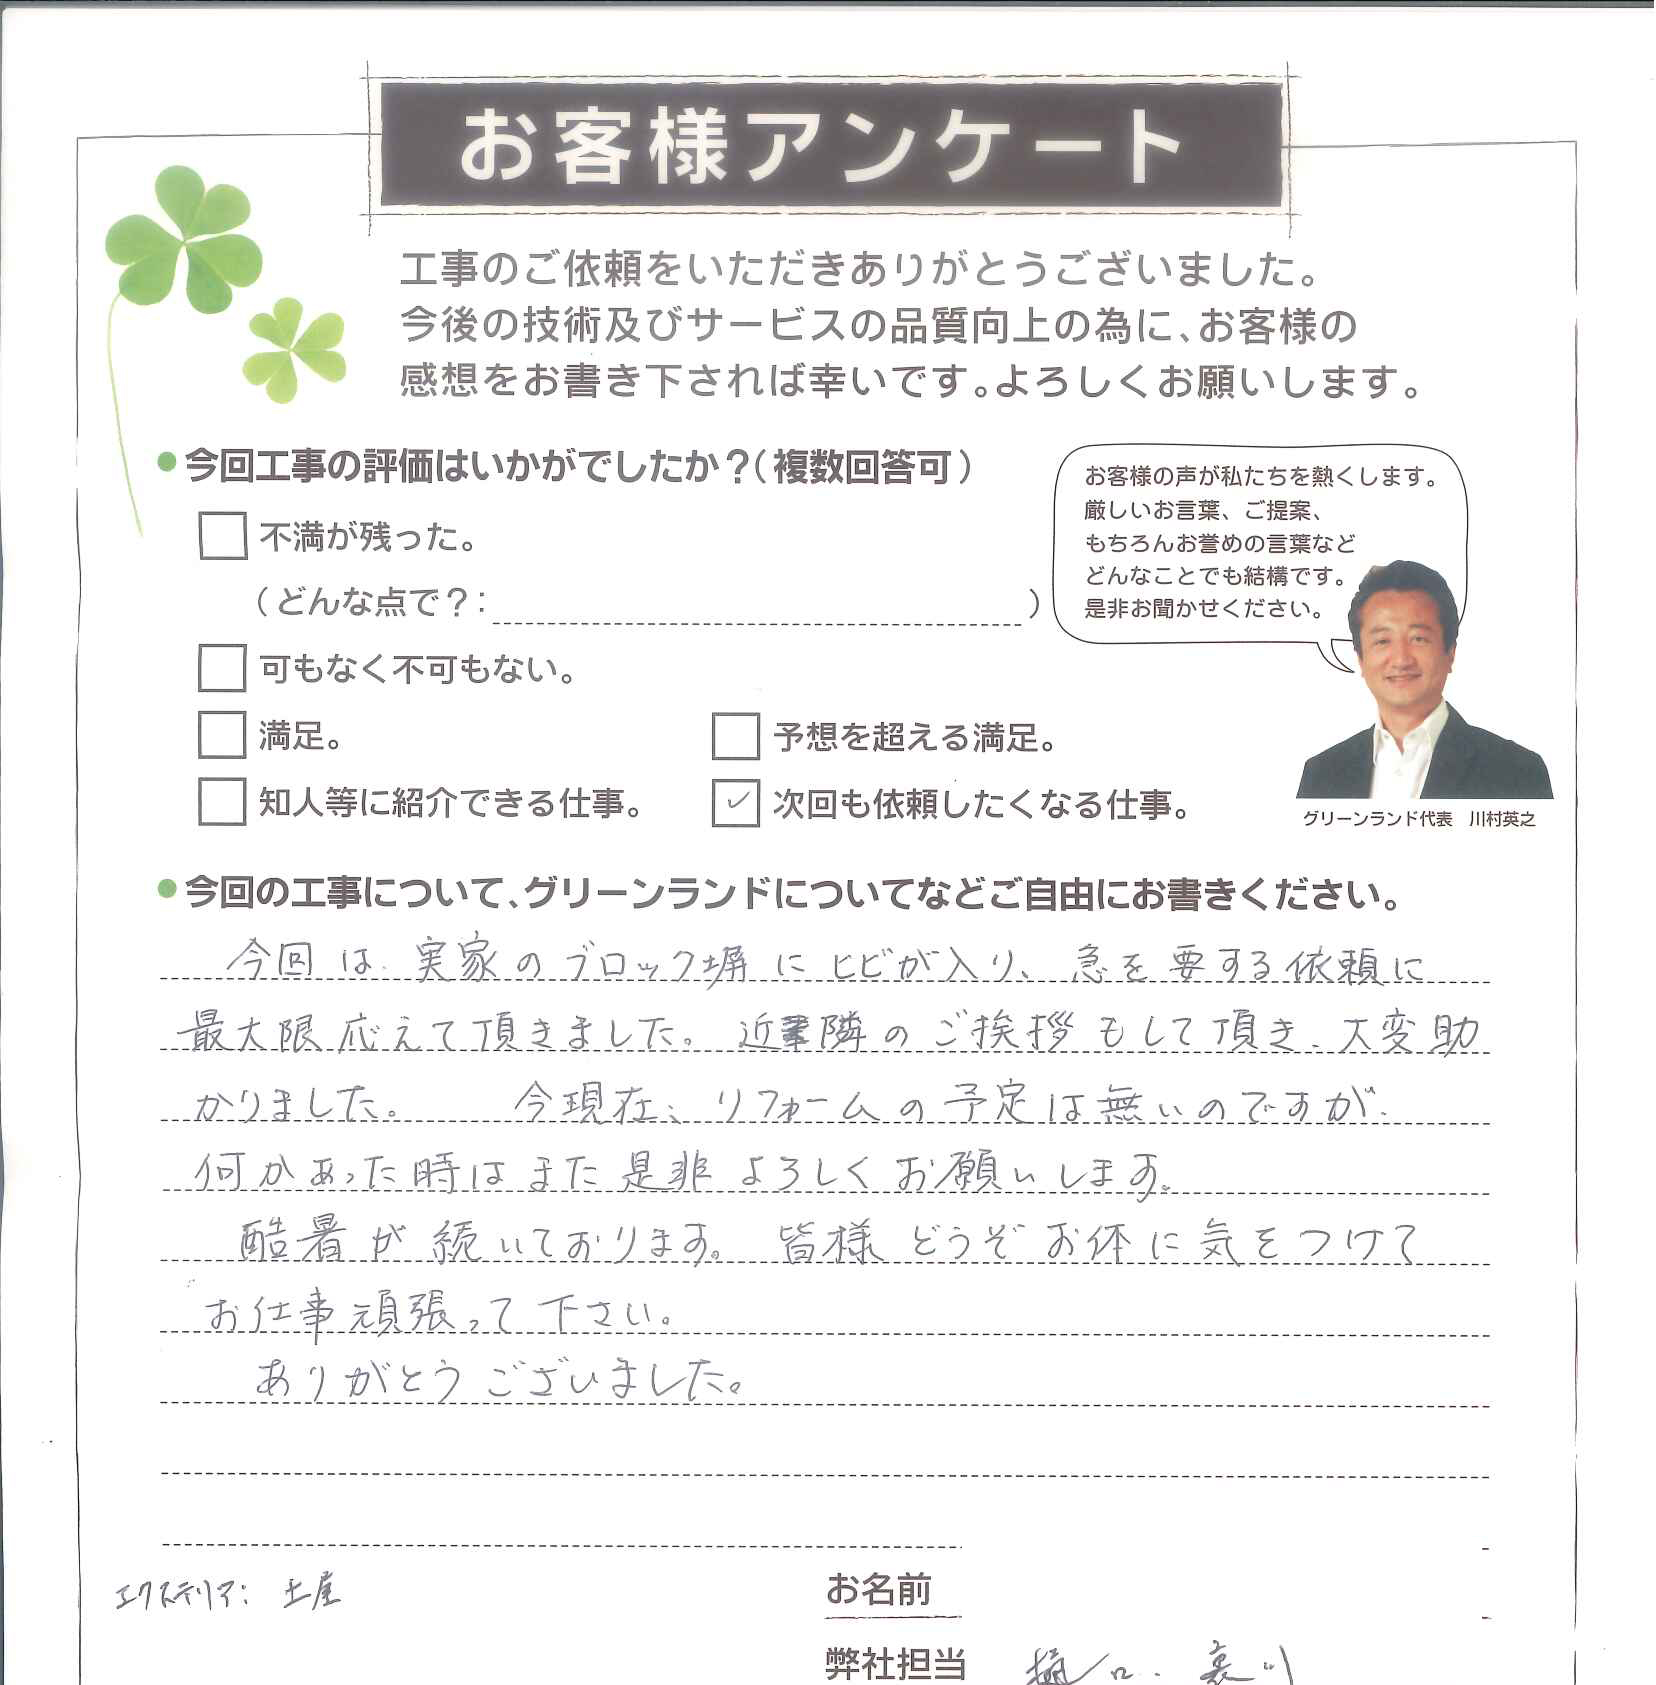 お客様アンケート
工事のご依頼をいただきありがとうございました。
今後の技術及びサービスの品質向上の為に、お客様の
感想をお書き下されば幸いです。よろしくお願いします。
●今回工事の評価はいかがでしたか？（複数回答可）
不満が残った。
（どんな点で？：　）
可もなく不可もない。
満足。
予想を超える満足。
知人等に紹介できる仕事。
✓ 次回も依頼したくなる仕事。
お客様の声が私たちを熱くします。
厳しいお言葉、ご提案、
もちろんお誉めの言葉など
どんなことでも結構です。
是非お聞かせください。
グリーンランド代表　川村英之
●今回の工事について、グリーンランドについてなどご自由にお書きください。
今回は、実家のブロック塀にヒビが入り、急を要する依頼に
最大限応えて頂きました。近隣のご挨拶もして頂き、大変助
かりました。　今現在、リフォームの予定は無いのですが、
何かあった時はまた是非よろしくお願いします。
酷暑が続いております。皆様どうぞお体に気をつけて
お仕事頑張って下さい。
ありがとうございました。
エクステリア：土屋
お名前
弊社担当　樋口、